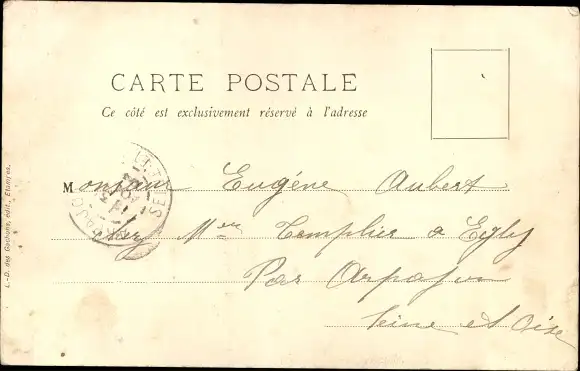 CARTE POSTALE
Ce côté est exclusivement réservé à l'adresse
Monsieur Eugéne Aubert
chez Mer Templier a Egly
Par Arpajon
Seine et Oise
L.-D. des Gachons, édit., Etampes.